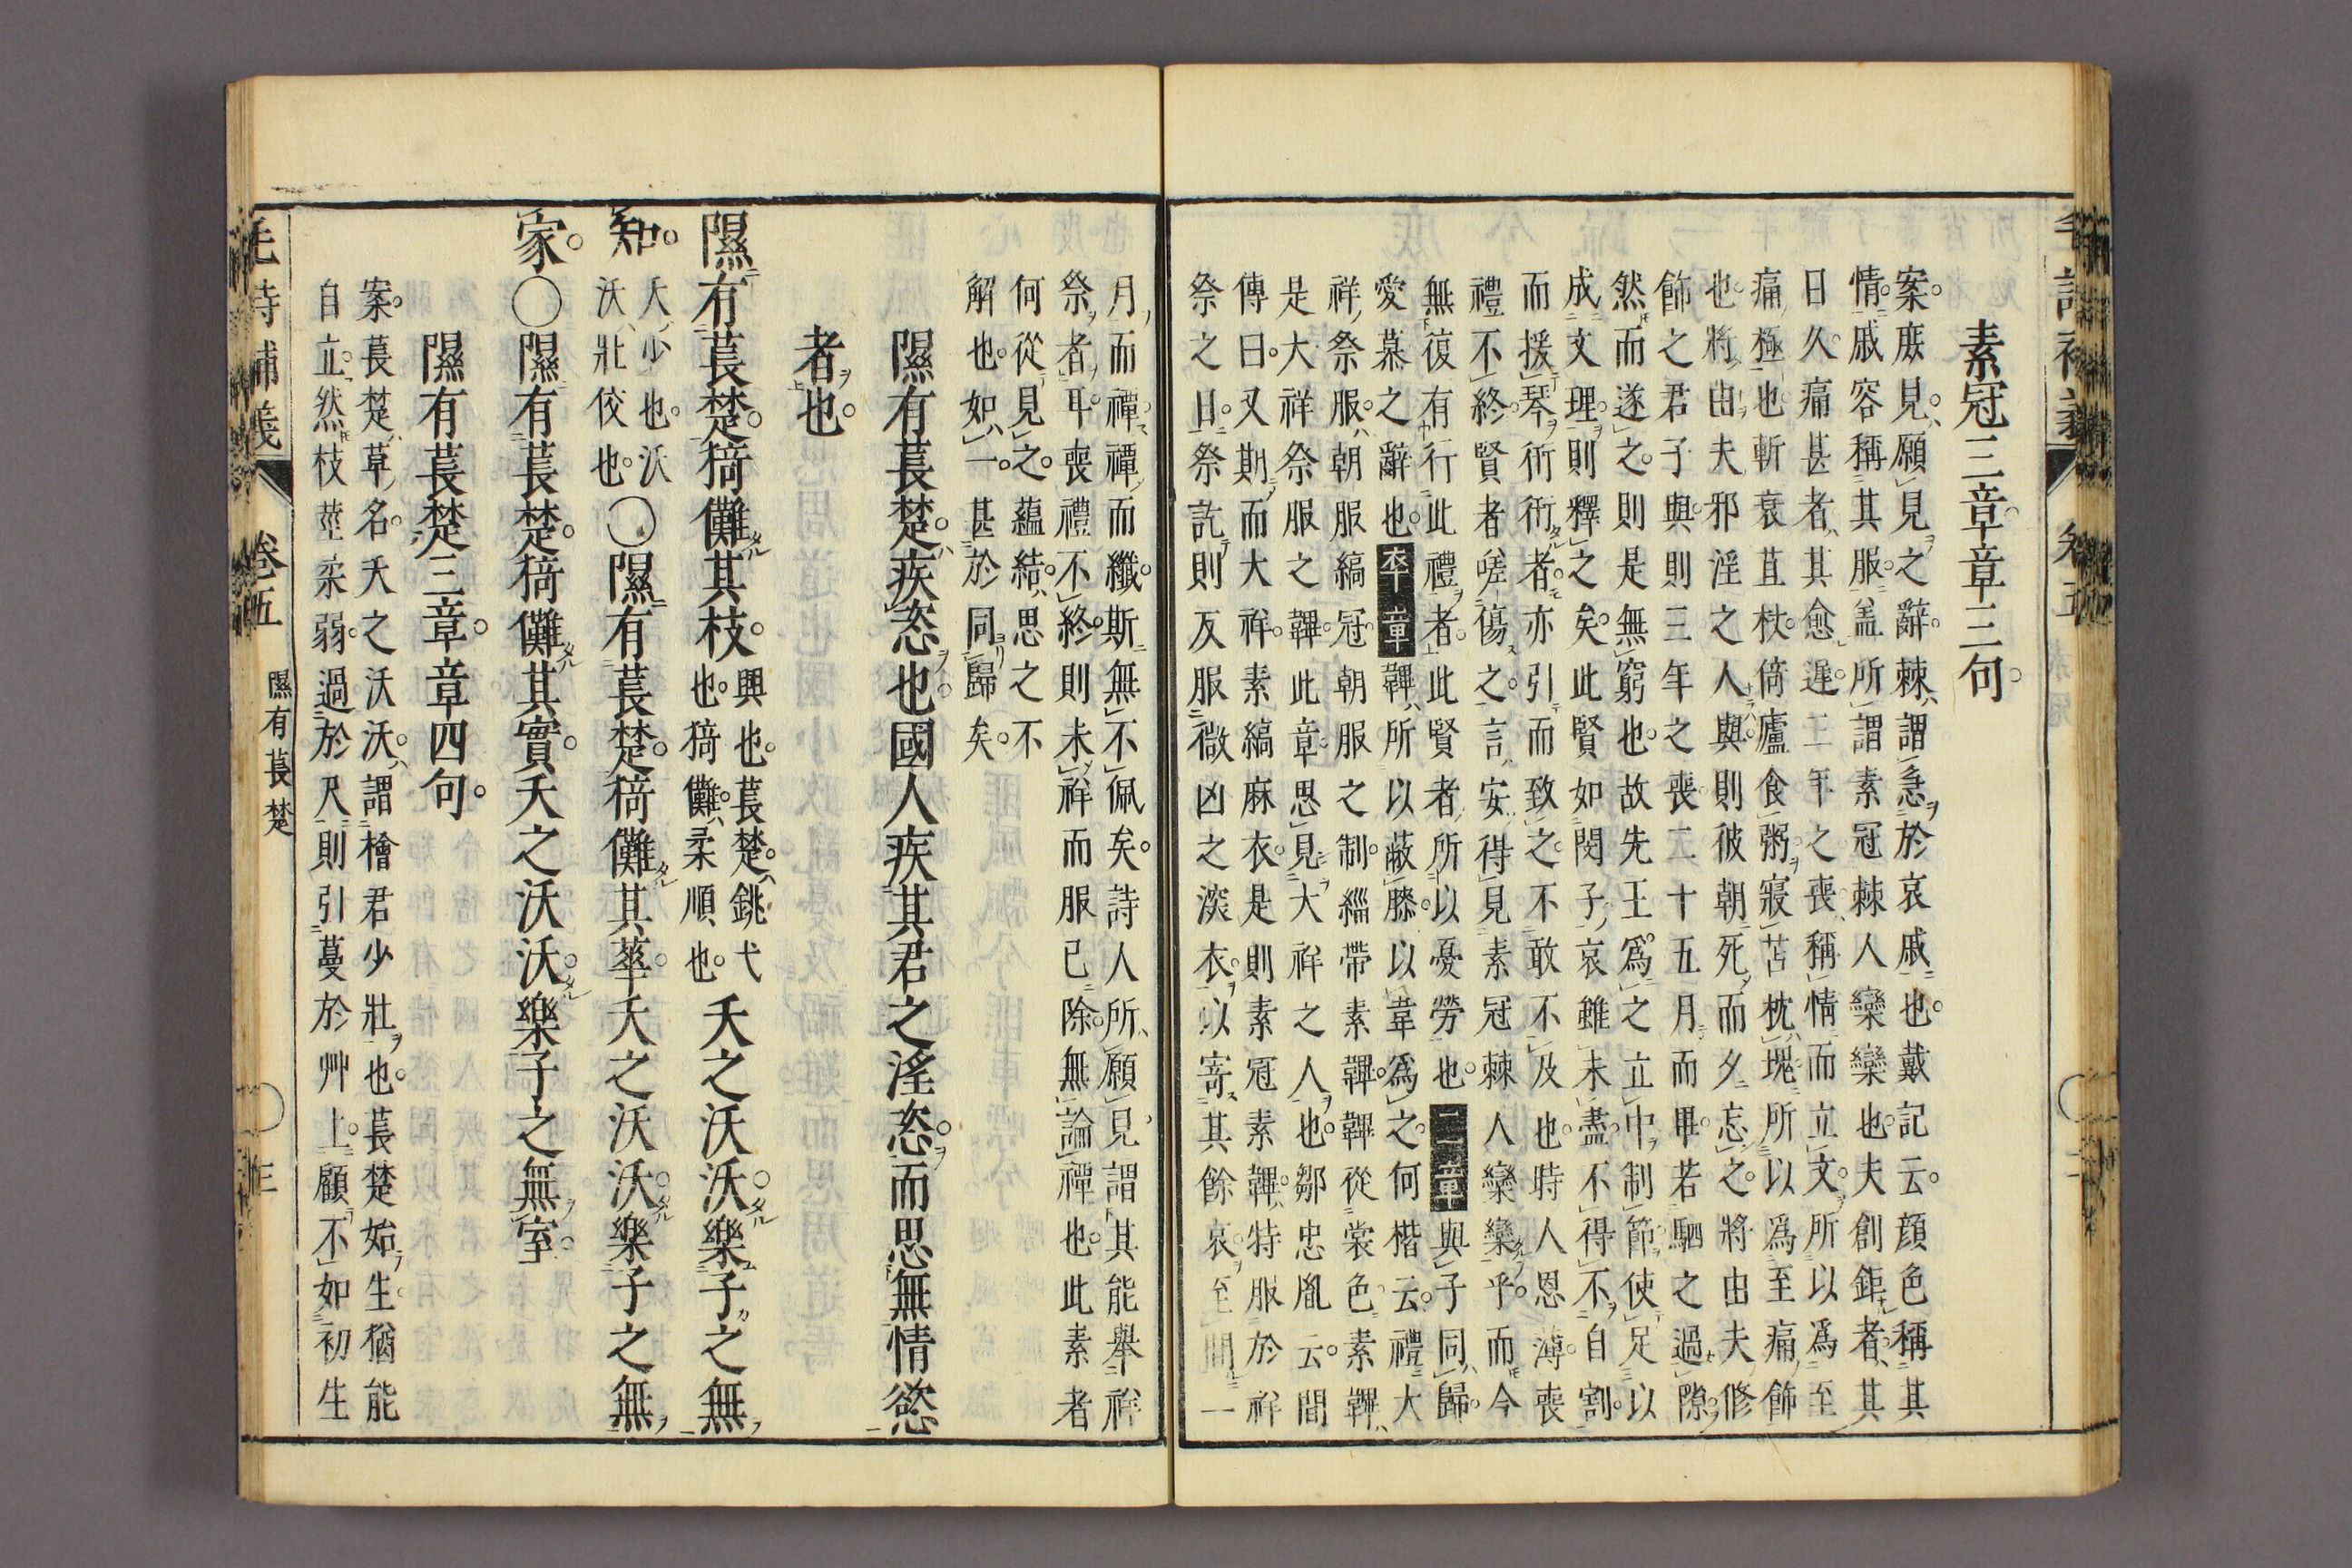 素冠三章章三句
案庶見願見之辭棘謂急於哀戚也戴記云顏色稱其
情戚容稱其服盖所謂素冠棘人欒欒也夫創鉅者其
日久痛甚者其愈遲二年之喪稱情而立文所以爲至
痛極也斬衰苴杖倚廬食粥寢苫枕塊所以爲至痛飾
也將由夫邪淫之人與則彼朝死而夕忘之將由夫修
飾之君子與則三年之喪二十五月而畢若駟之過隙
然而遂之則是無窮也故先王爲之立中制節使足以
成文理則釋之矣此賢如閔子哀雖未盡不得不自割
而援琴衎衎者亦引而致之不敢不及也時人恩薄喪
禮不終賢者嗟傷之言安得見素冠棘人欒欒乎而今
無復有行此禮者此賢者所以憂勞也二章與子同歸
愛慕之辭也卒章韠所以蔽膝以韋爲之何楷云禮大
祥祭服朝服縞冠朝服之制緇帶素韠韠從裳色素韠
是大祥祭服之韠此章思見大祥之人也鄒忠胤云間
傳曰又期而大祥素縞麻衣是則素冠素韠特服於祥
祭之日祭訖則反服微凶之深衣以寄其餘哀至間一
月而禫禫而纖斯無不佩矣詩人所願見謂其能舉祥
祭者耳喪禮不終則未祥而服已除無論禫也此素者
何從見之蘊結思之不
解也如一甚於同歸矣
隰有萇楚疾恣也國人疾其君之淫恣而思無情慾
者也
隰有萇楚猗儺其枝興也萇楚銚弋也猗儺柔順也夭之沃沃樂子之無
知夭少也沃沃壯佼也○隰有萇楚猗儺其華夭之沃沃樂子之無
家○隰有萇楚猗儺其實夭之沃沃樂子之無室
隰有萇楚三章章四句
案萇楚草名夭之沃沃謂檜君少壯也萇楚始生猶能
自立然枝莖柔弱過於尺則引蔓於艸上顧不如初生
毛詩補義 卷五 隰有萇楚